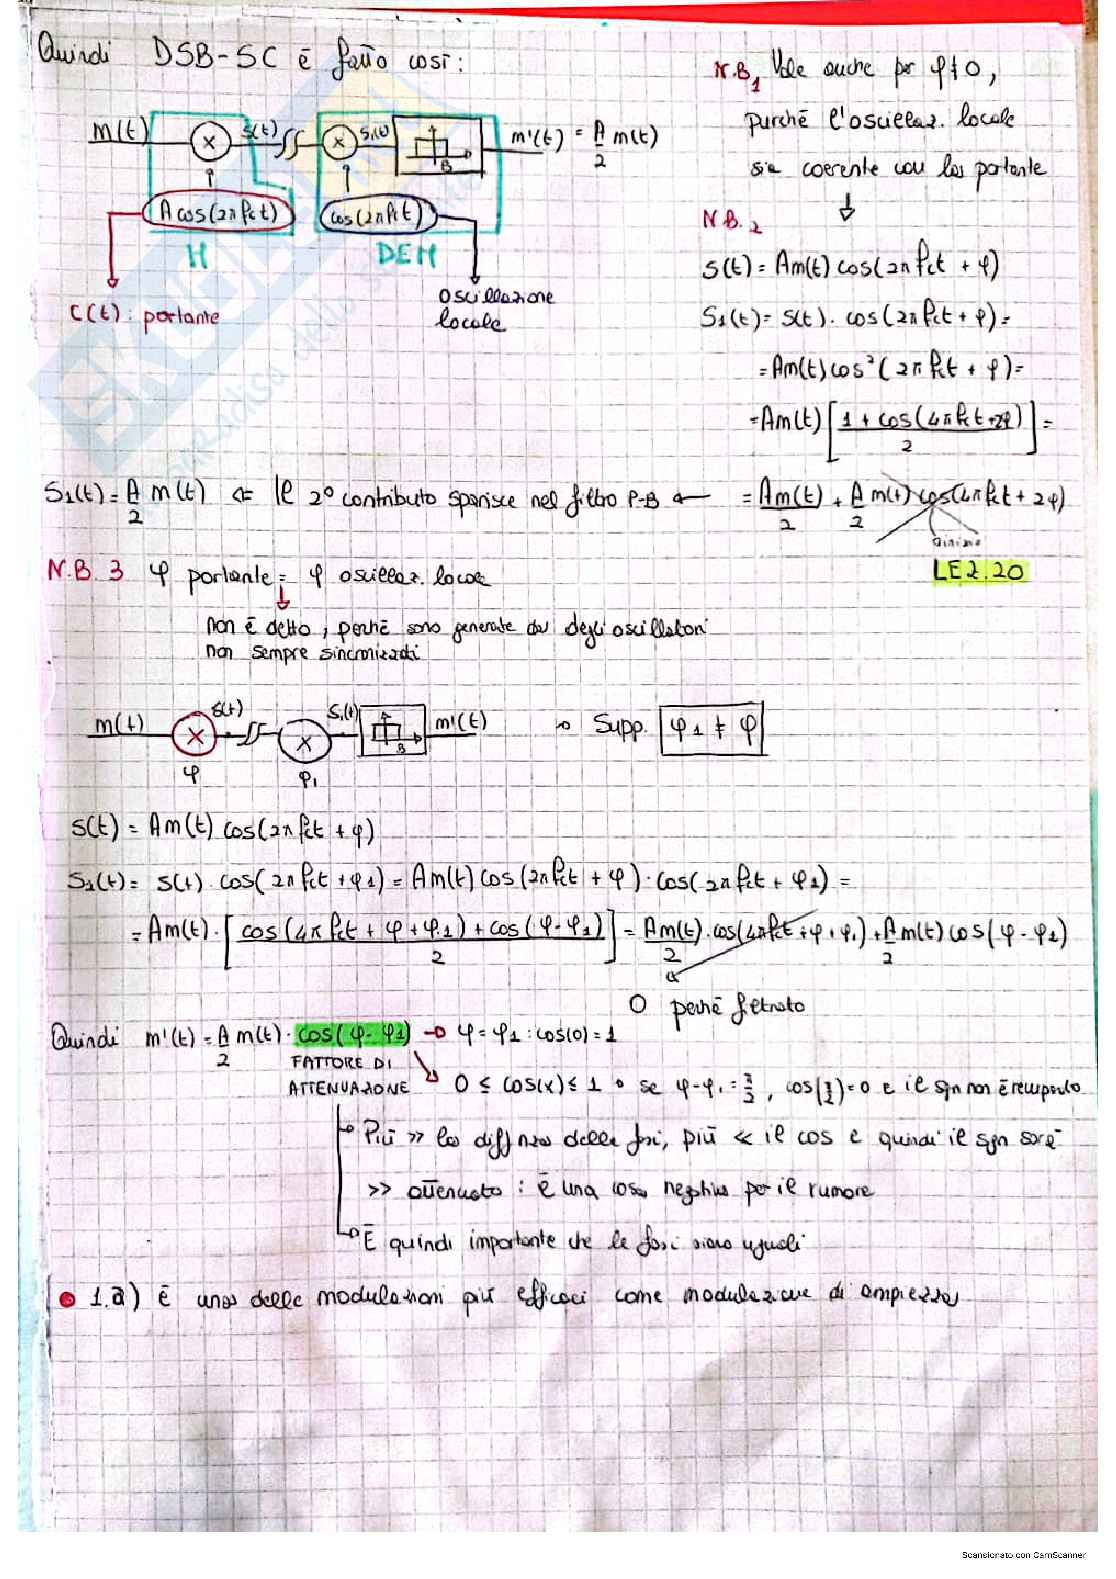 Quindi DSB-SC è fatto così:
m(t) s(t) S₁(t) B m'(t) = A/2 m(t)
A cos(2πfct) cos(2πfct)
M DEM
C(t): portante
oscillazione
locale
N.B.1 Vale anche per φ≠0,
purché l'oscillaz. locale
sia coerente con la portante
N.B.2
s(t) = Am(t) cos(2πfct + φ)
S₁(t) = s(t) · cos(2πfct + φ) =
= Am(t) cos²(2πfct + φ) =
= Am(t) [1 + cos(4πfct + 2φ) / 2] =
S₁(t) = A/2 m(t) ⇐ Il 2° contributo sparisce nel filtro P-B ← = Am(t)/2 + A/2 m(t) cos(4πfct + 2φ)
LEZ.20
N.B.3 φ portante = φ oscillaz. locale
non è detto, perché sono generate da degli oscillatori
non sempre sincronizzati
m(t) s(t) S₁(t) B m'(t) → Supp. φ₁ ≠ φ
φ φ₁
s(t) = Am(t) cos(2πfct + φ)
S₁(t) = s(t) · cos(2πfct + φ₁) = Am(t) cos(2πfct + φ) · cos(2πfct + φ₁) =
= Am(t) · [cos(4πfct + φ + φ₁) + cos(φ - φ₁) / 2] = Am(t)/2 · cos(4πfct + φ + φ₁) + A/2 m(t) cos(φ - φ₁)
0 perché filtrato
Quindi m'(t) = A/2 m(t) · cos(φ - φ₁) → φ = φ₁ : cos(0) = 1
FATTORE DI
ATTENUAZIONE 0 ≤ cos(x) ≤ 1 → se φ - φ₁ = π/2, cos(π/2) = 0 e il sgn non è recuperato
Più >> la diffnza delle fasi, più << il cos e quindi il sgn sarà
>> attenuato : è una cosa negativa per il rumore
È quindi importante che le fasi siano uguali
1.a) è una delle modulazioni più efficaci come modulazione di ampiezza
Scansionato con CamScanner